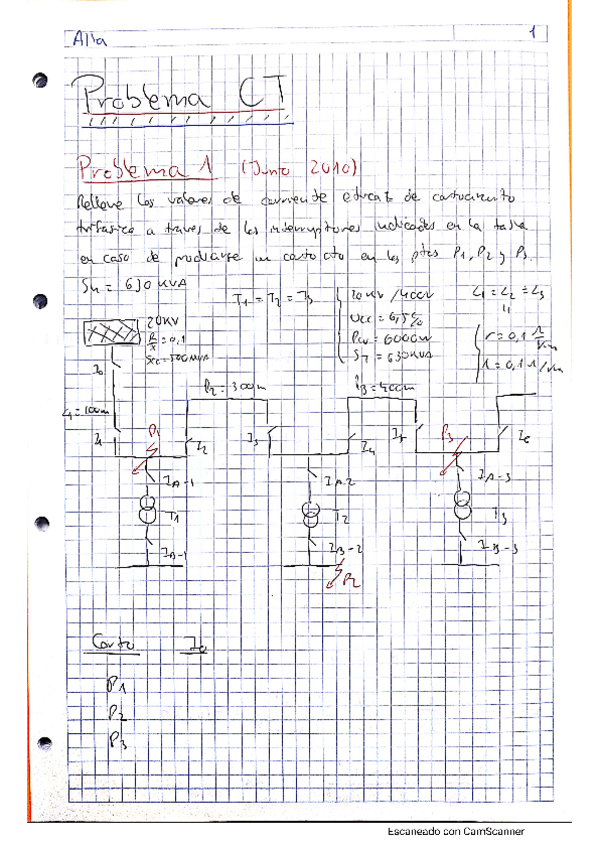 Alta 1
Problema CT
Problema 1 (Junio 2010)
Rellene los valores de corriente de cortocircuito
trifásico a través de los interruptores indicados en la tabla
en caso de producirse un cortocto en los ptos P1, P2 y P3.
Sn = 630 KVA
T1 = T2 = T3
20 KV / 400V
Ucc = 6,5%
Pcu = 6000W
ST = 630KVA
L1 = L2 = L3
r = 0,1 Ω/Km
X = 0,1 Ω/Km
20KV
R/X = 0,1
Scc = 500MVA
I0
L1 = 100m
I1
P1
L2 = 300m
I2
I3
L3 = 400m
I4
I5
P3
I6
IA-1
T1
IA-2
T2
IB-2
P2
IA-3
T3
IB-3
Corto I0
P1
P2
P3
Escaneado con CamScanner